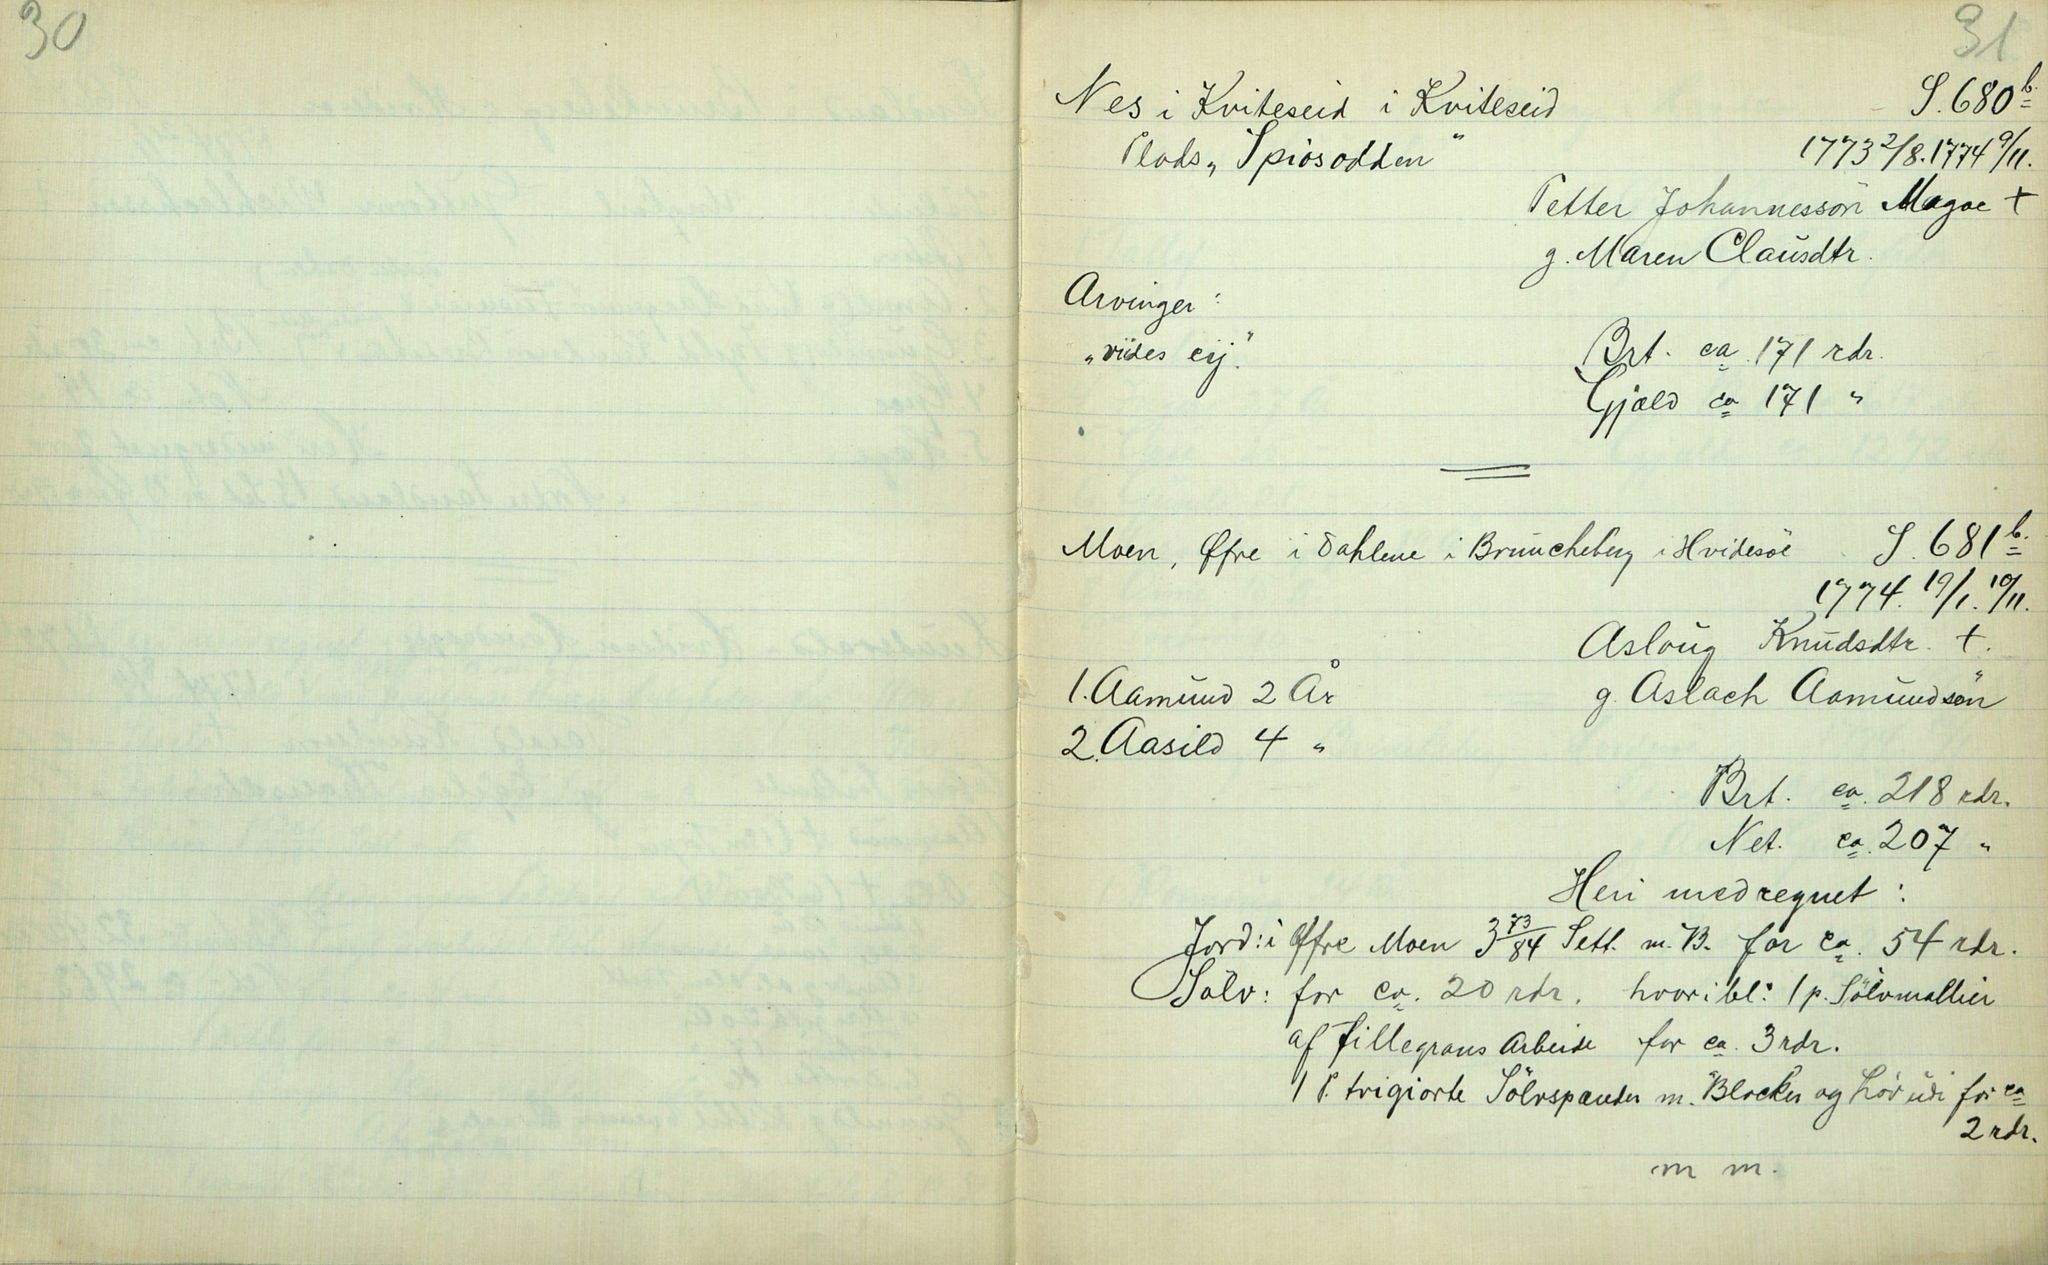 30
31
Nes i Kviteseid i Kviteseid S. 680 b.
Plads „Spiosodden" 1773 2/8. 1774 9/11.
Petter Johannessön Magae +
g. Maren Clausdtr.
Arvinger:
„viides eij." Brt. ca. 171 rdr.
Gjæld ca 171 "
Moen, Øfre i Dahlene i Bruncheberg i Hvidesöe S. 681 b.
1774. 19/1. 10/11.
Asloug Knudsdtr. +.
1. Aamund 2 År g. Aslach Aamundsön
2. Aasild 4 "
Brt. ca. 218 rdr.
Net. ca. 207 "
Heri medregnet:
Jord: i Øfre Moen 3 73/84 Sett. m. B. for ca. 54 rdr.
Sölv: for ca. 20 rdr. hvoribl: 1 p. Sölvmallier
af fillegrans Arbeide for ca. 3 rdr.
1 P. trigiorte Sölvspænder m. Blocker og Lör udi for ca
2 rdr.
m m.